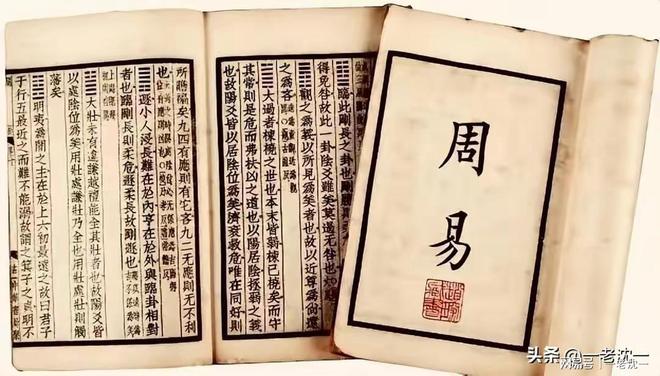 ䷒臨此剛長之卦也剛勝則柔
得免咎故此一卦陰爻雖美莫過无咎也
䷓觀之爲義以所見爲美者也故以近尊爲尚遠
之爲吝
䷛大過者棟橈之世也本末皆弱棟已橈矣而守
其常則是危而弗扶凶之道也以陽居陰拯弱之義
也故陽爻皆以居陰位爲美濟衰救危唯在同好則
所贍褊矣九四有應則有它吝九二无應則无不利
也
䷠遯小人浸長難在於內亨在於外與臨卦相對
者也臨剛長則柔危遯柔長故剛遯也
䷡大壯未有違謙越禮能全其壯者也故陽爻皆
以處陰位爲美用壯處謙壯乃全也用壯處壯則觸
藩矣
䷣明夷爲闇之主在於上六初最遠之故曰君子
于行五最近之而難不能溺故謂之箕子之貞明不
周易
头条 @一老沈一
搜狐号@一老沈一